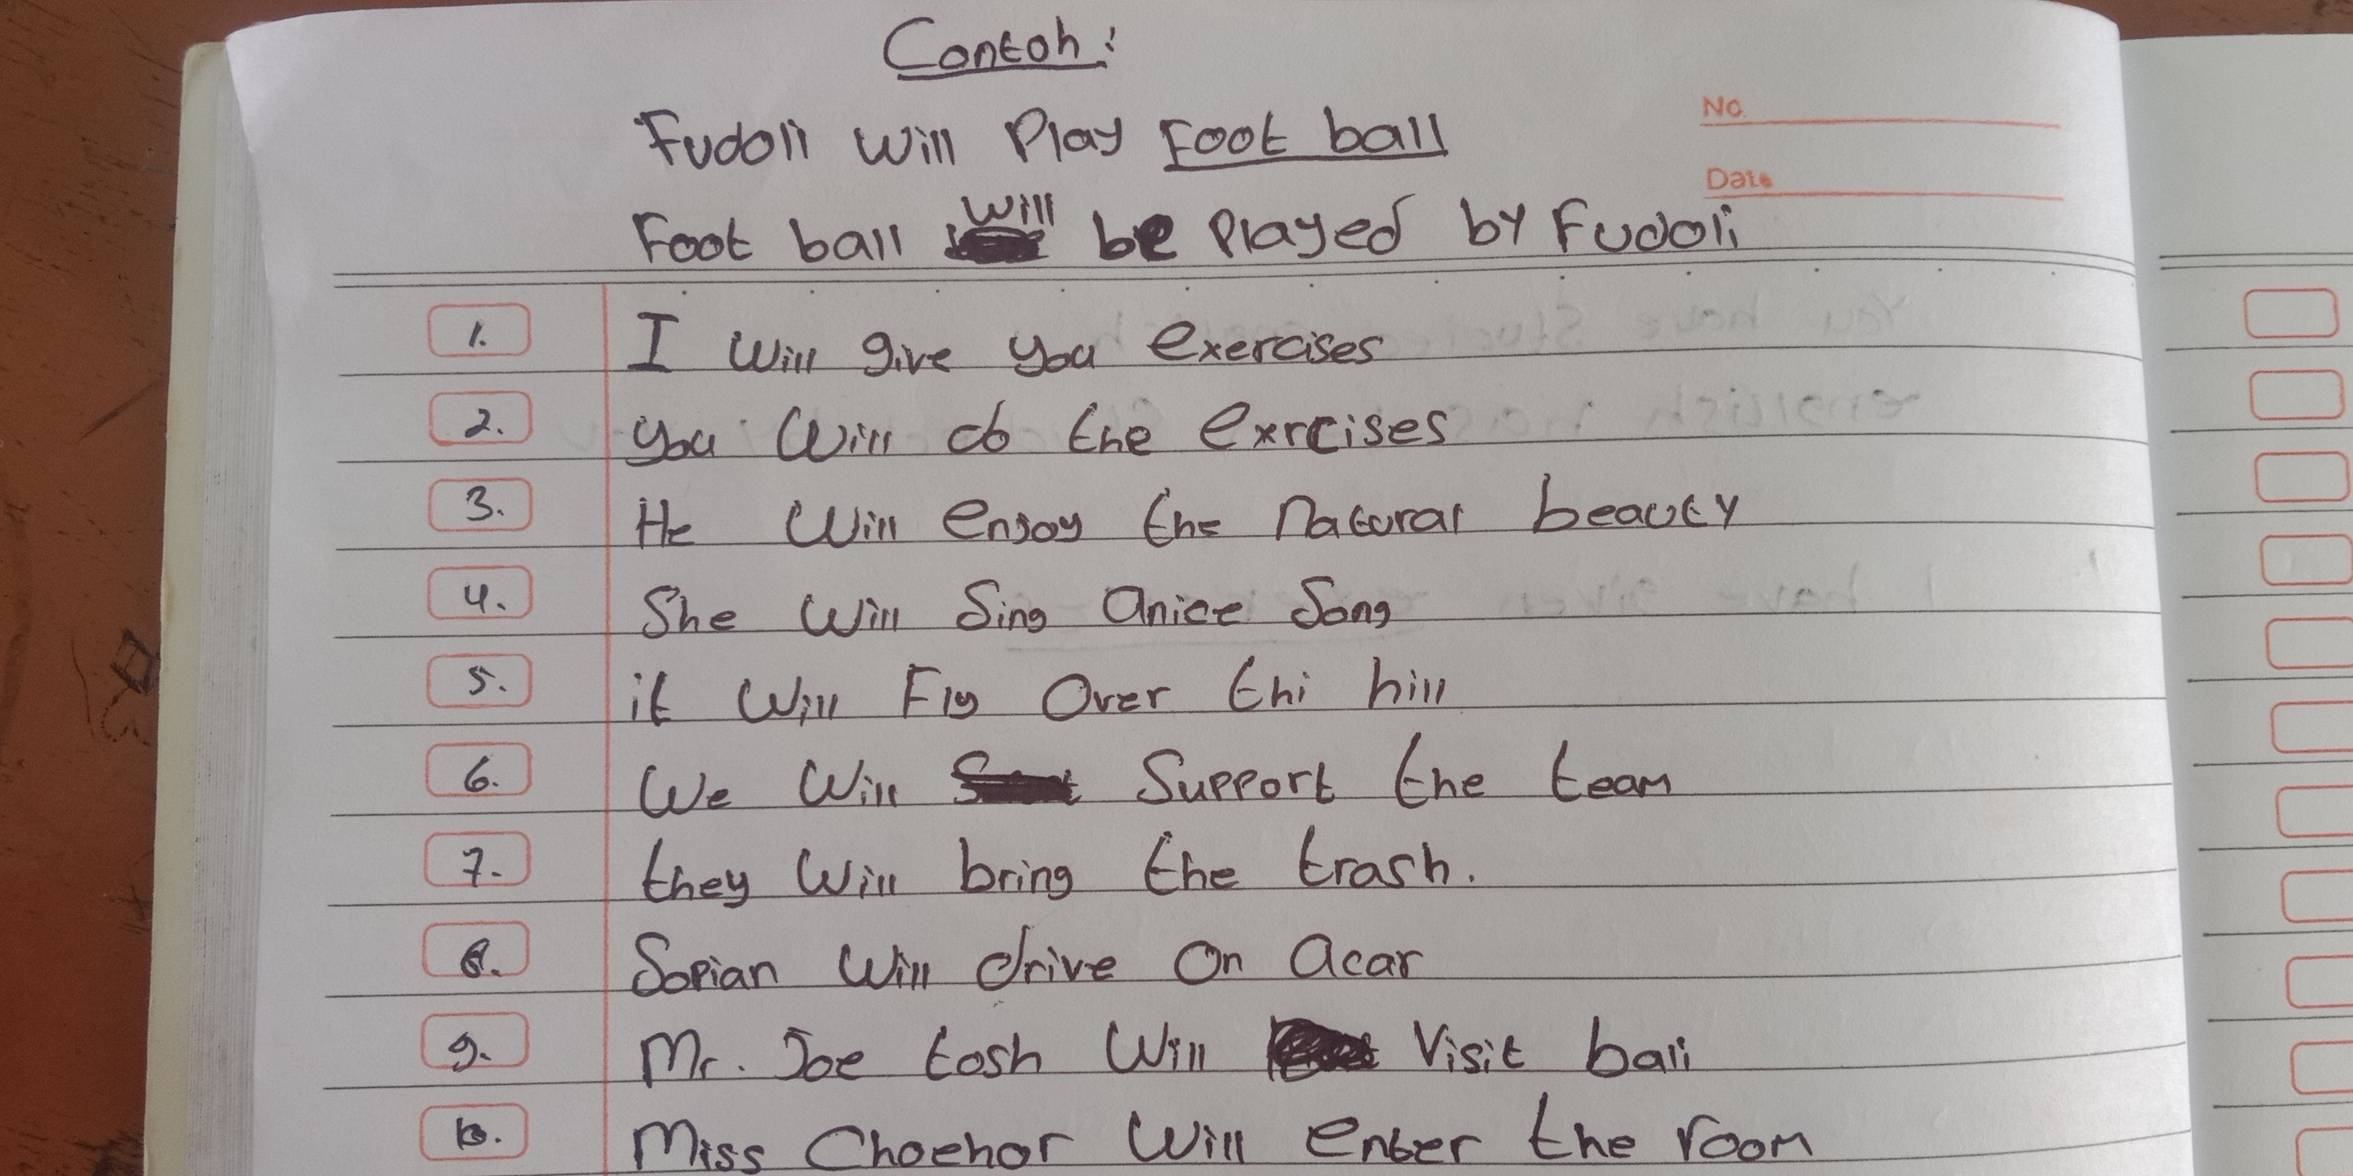 Contoh:
Fudoli Will Play Foot ball
No.
Date
Foot ball Will be Played by Fudoli
1. I Will give you exercises
2. you Will do the exrcises
3. He Will enjoy the natural beauty
4. She Will Sing anice Song
5. it Will Fly Over thi hill
6. We Will Support the team
7. they Will bring the trash.
8. Sopian Will drive On acar
9. Mr. Joe tosh Will Visit bali
10. Miss Choehor Will enter the room